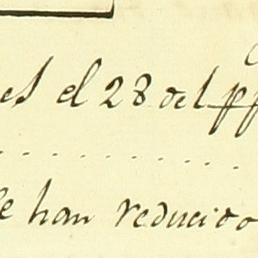 es el 28 del pp
se han reducido